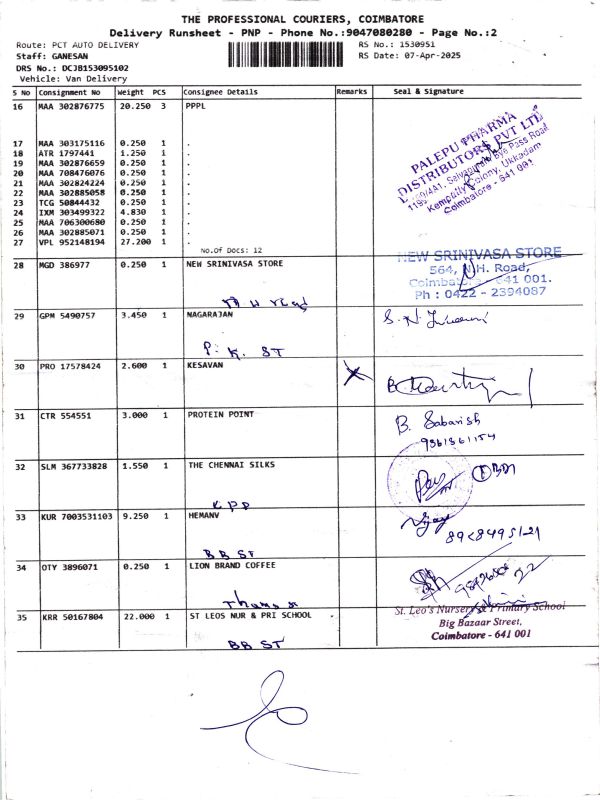 THE PROFESSIONAL COURIERS, COIMBATORE
Delivery Runsheet - PNP - Phone No.:9047080280 - Page No.:2
Route: PCT AUTO DELIVERY RS No.: 1530951
Staff: GANESAN RS Date: 07-Apr-2025
DRS No.: DCJB153095102
Vehicle: Van Delivery
S No Consignment No Weight PCS Consignee Details Remarks Seal & Signature
16 MAA 302876775 20.250 3 PPPL
17 MAA 303175116 0.250 1 .
18 ATR 1797441 1.250 1 .
19 MAA 302876659 0.250 1 .
20 MAA 708476076 0.250 1 .
21 MAA 302824224 0.250 1 .
22 MAA 302885058 0.250 1 .
23 TCG 50844432 0.250 1 .
24 IXM 303499322 4.830 1 .
25 MAA 706300680 0.250 1 .
26 MAA 302885071 0.250 1 .
27 VPL 952148194 27.200 1 .
No.Of Docs: 12
PALEPU PHARMA
DISTRIBUTORS PVT LTD
Bye Pass Road
Colony, Ukkadam
Coimbatore - 641 001
28 MGD 386977 0.250 1 NEW SRINIVASA STORE
NEW SRINIVASA STORE
564, N.H. Road,
Coimbatore - 641 001.
Ph : 0422 - 2394087
29 GPM 5490757 3.450 1 NAGARAJAN
P. K. ST
30 PRO 17578424 2.600 1 KESAVAN
31 CTR 554551 3.000 1 PROTEIN POINT
B. Sabarish
32 SLM 367733828 1.550 1 THE CHENNAI SILKS
KPP
33 KUR 7003531103 9.250 1 HEMANV
BB ST
Vijay
34 OTY 3896071 0.250 1 LION BRAND COFFEE
35 KRR 50167804 22.000 1 ST LEOS NUR & PRI SCHOOL
BB ST
St. Leo's Nursery & Primary School
Big Bazaar Street,
Coimbatore - 641 001